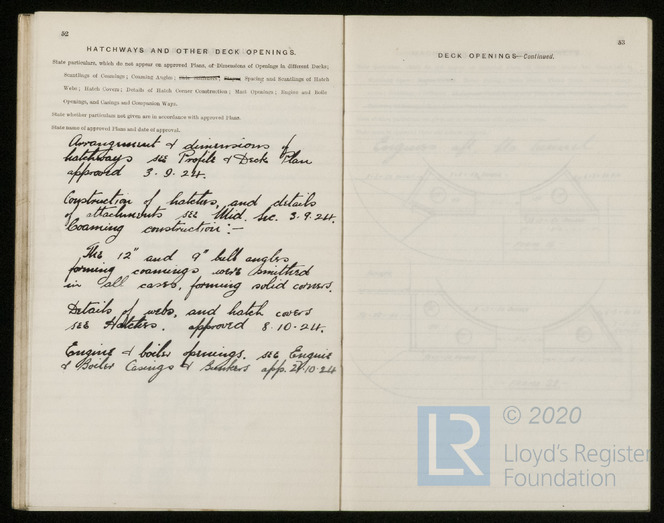 52
HATCHWAYS AND OTHER DECK OPENINGS.
State particulars, which do not appear on approved Plans, of Dimensions of Openings in different Decks;
Scantlings of Coamings; Coaming Angles; Spacing and Scantlings of Hatch
Webs; Hatch Covers; Details of Hatch Corner Construction; Mast Openings; Engine and Boiler
Openings, and Casings and Companion Ways.
State whether particulars not given are in accordance with approved Plans.
State name of approved Plans and date of approval.
Arrangement & dimensions of
hatchways see Profile & Deck Plan
approved 3.9.24.
Construction of hatches, and details
of attachments see Mid. Sec. 3.9.24.
Coaming construction:-
The 12" and 9" bulb angles
forming coamings were smithed
in all cases, forming solid corners.
Details of webs, and hatch covers
see Hatches. approved 8.10.24.
Engine & boiler openings. see Engine
& Boiler Casings & Bunkers app. 24.10.24
53
DECK OPENINGS—Continued.
LR
© 2020
Lloyd's Register
Foundation